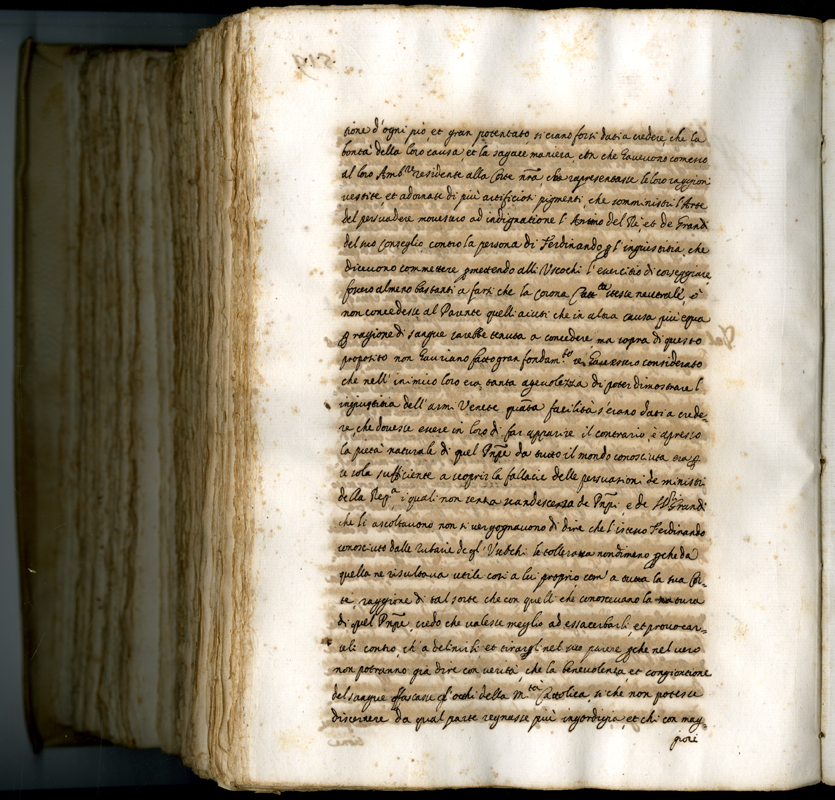 tione d'ogni più, et gran potentato, si erano forsi dati a credere che la
bontà della loro causa et la sagace maniera con che havevono comesso
al loro Amb.re residente alla Corte nr̃a, che rapresentasse le loro raggioni
vestite et adornate di più artificiosi pigmenti, che somministri l'Arte
del persuadere movessero ad indignatione l'Animo del Rè, et de Grandi
del suo Conseglio contro la persona di Ferdinando ꝑ l'ingiustitia, che
dicevono commettere ꝑmettendo alli Uscochi l'esercitio di corseggiare,
fossero almeno bastanti a farsi che la Corona Catt.ca stesse neutrale, o
non concedesse al Parente quelli aiuti che in altra causa più equa
ꝑ ragione di sangue sarebbe tenuta a concedere ma sopra di questo
proposito non havriano fatto gran fondam.to se havessero considerato
che nell'inimico loro era tanta agevolezza di poter dimostrare l'
ingiustitia dell'armi Venete quãta facilità s'erano dati a crede-
re, che dovesse essere in loro di far apparire il contrario, è apresso
la pietà naturale di quel Pñpe da tutto il mondo conosciuta era ꝑ
se sola sufficiente a scoprir la fallacie delle persuasioni de ministri
della Rep.a i quali non senza scandescenza de Pñpi, e de Grandi
che li ascoltavono non si vergognavono di dire che l'istesso Ferdinando
conosciuto dalle rubarie de gl'Uscochi le tollerava nondimeno ꝑche da
quella ne risultava utile così a lui proprio com' a tutta la sua Cor-
te, raggione di tal sorte che con quelli che conoscevano la natura
di quel Pñpe, credo che valesse meglio ad essacerbarli, et provocar-
veli contro, ch'a delinirli et tirargl' nel suo parere ꝑche nel vero
non potranno già dire con verità, che la benevolenza, et congiontione
del sangue offuscasse gl'occhi della M.tà Cattolica si che non potesse
discernere da qual parte regnasse più ingordigia, et chi con mag-
giori